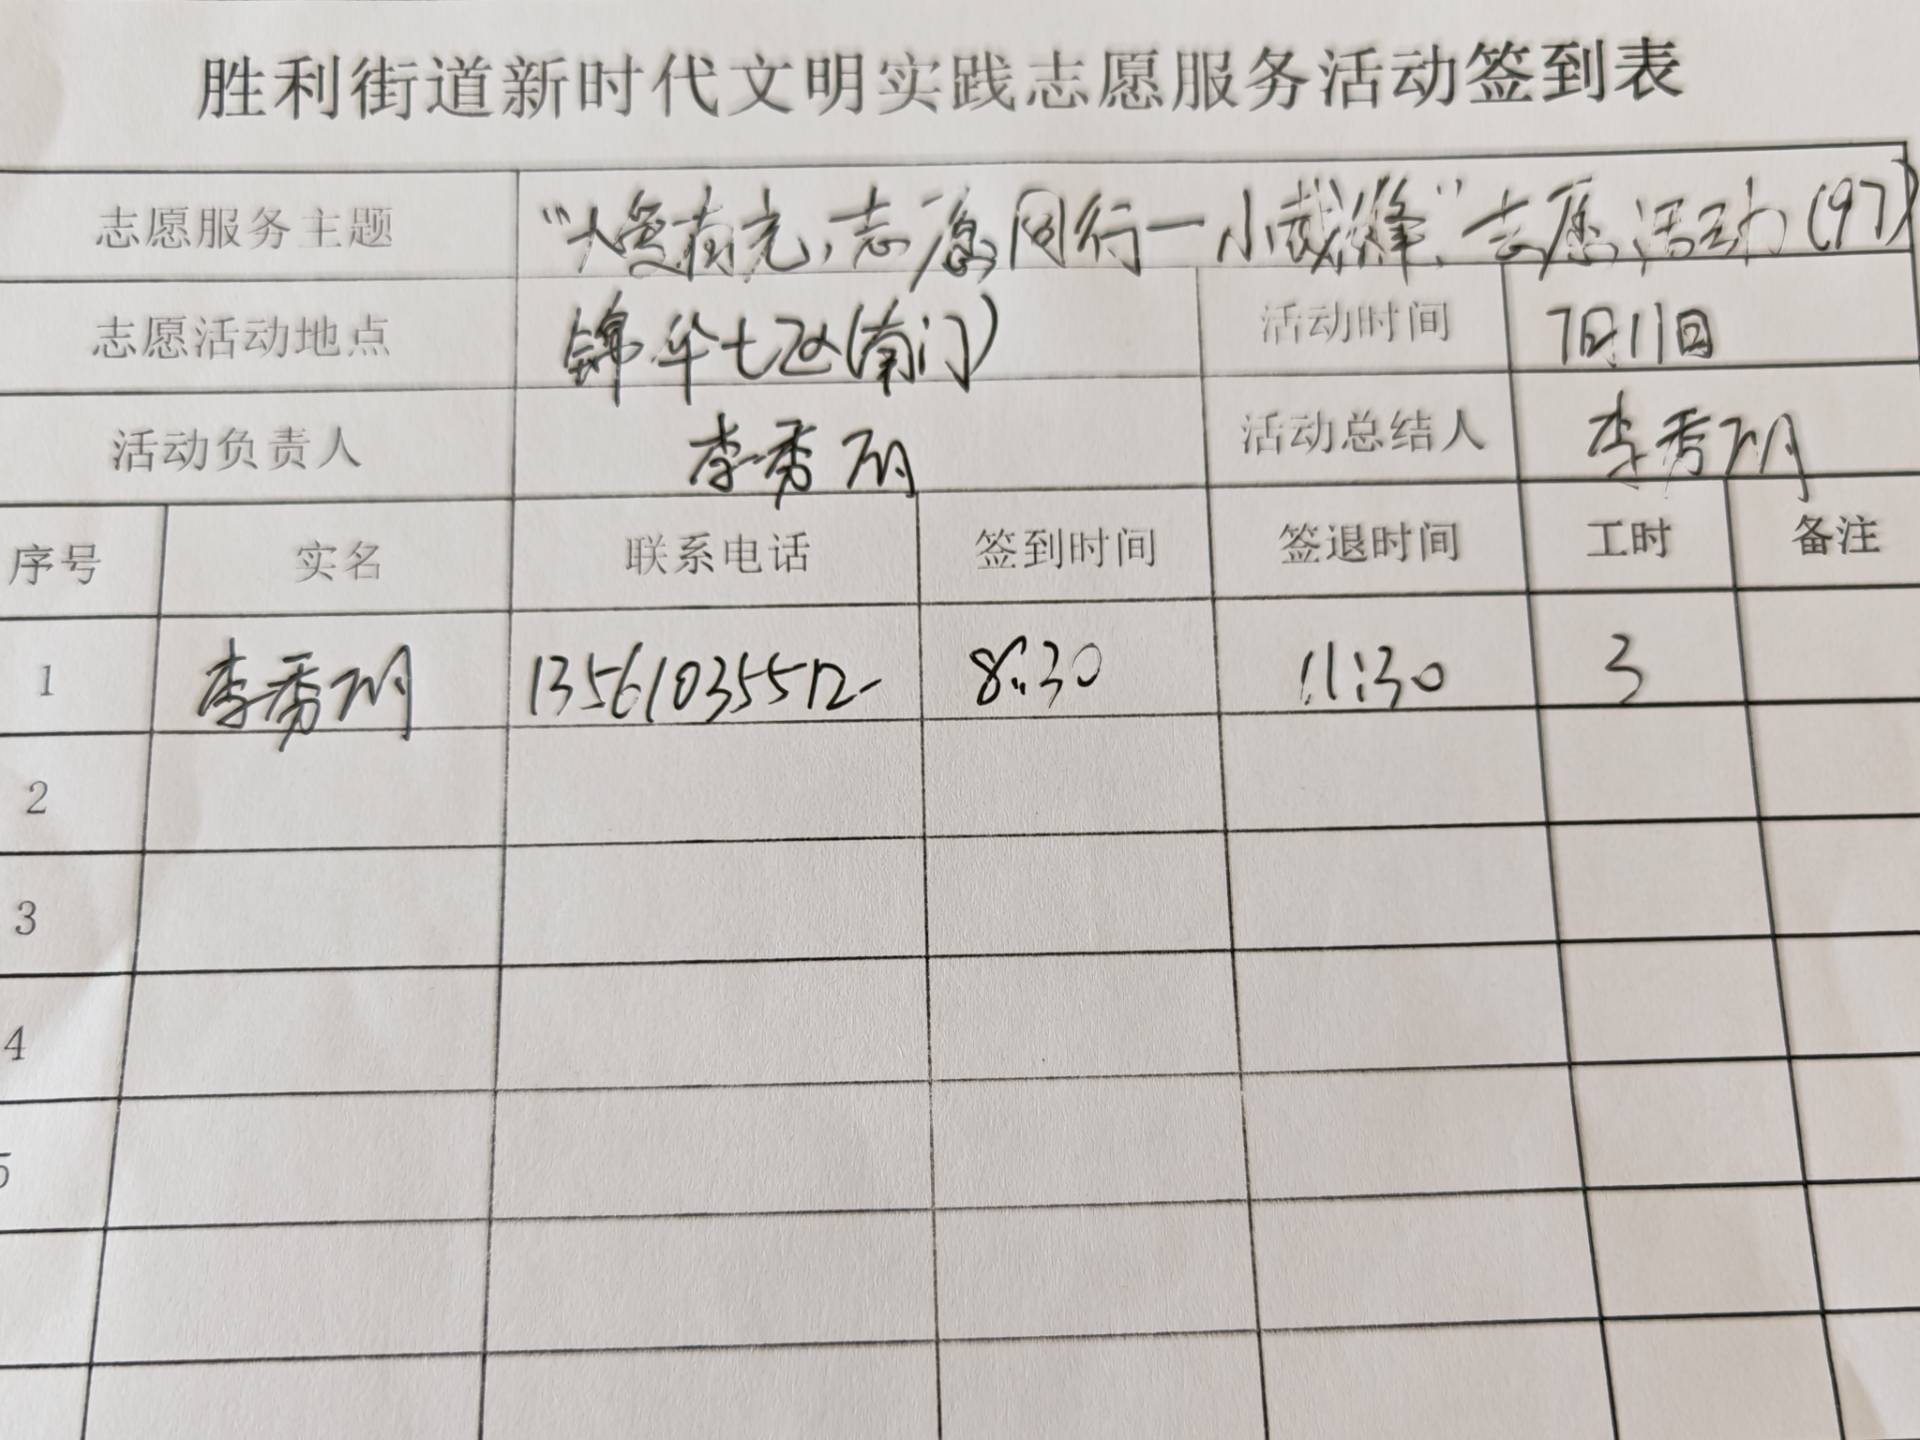 胜利街道新时代文明实践志愿服务活动签到表
志愿服务主题 志愿同行一小裁缝"志愿活动(97)
志愿活动地点 锦华七区(南门) 活动时间 7月11日
活动负责人 李秀丽 活动总结人 李秀丽
序号 实名 联系电话 签到时间 签退时间 工时 备注
1 李秀丽 13561035512 8:30 11:30 3
2
3
4
5